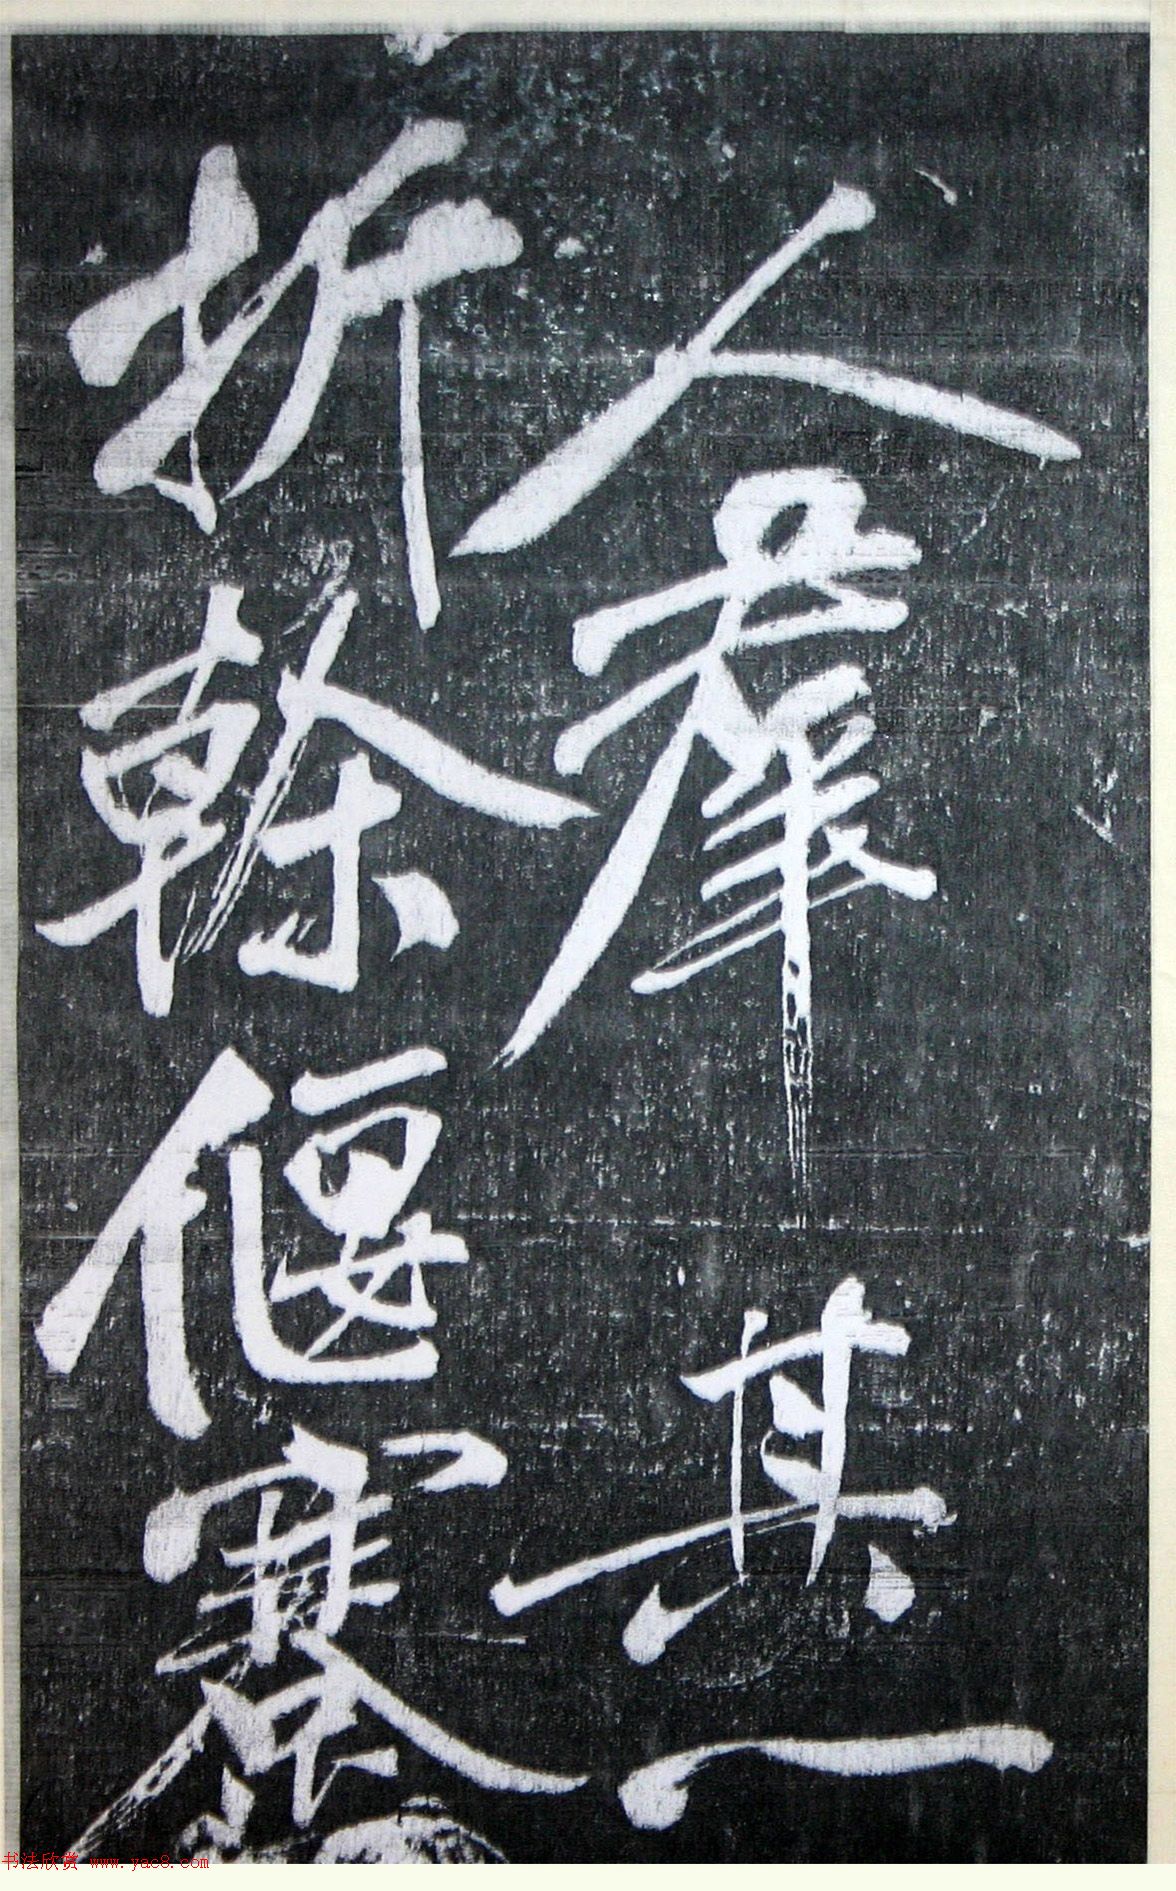 人群其一
折幹偃蹇
书法欣赏 www.yac8.com